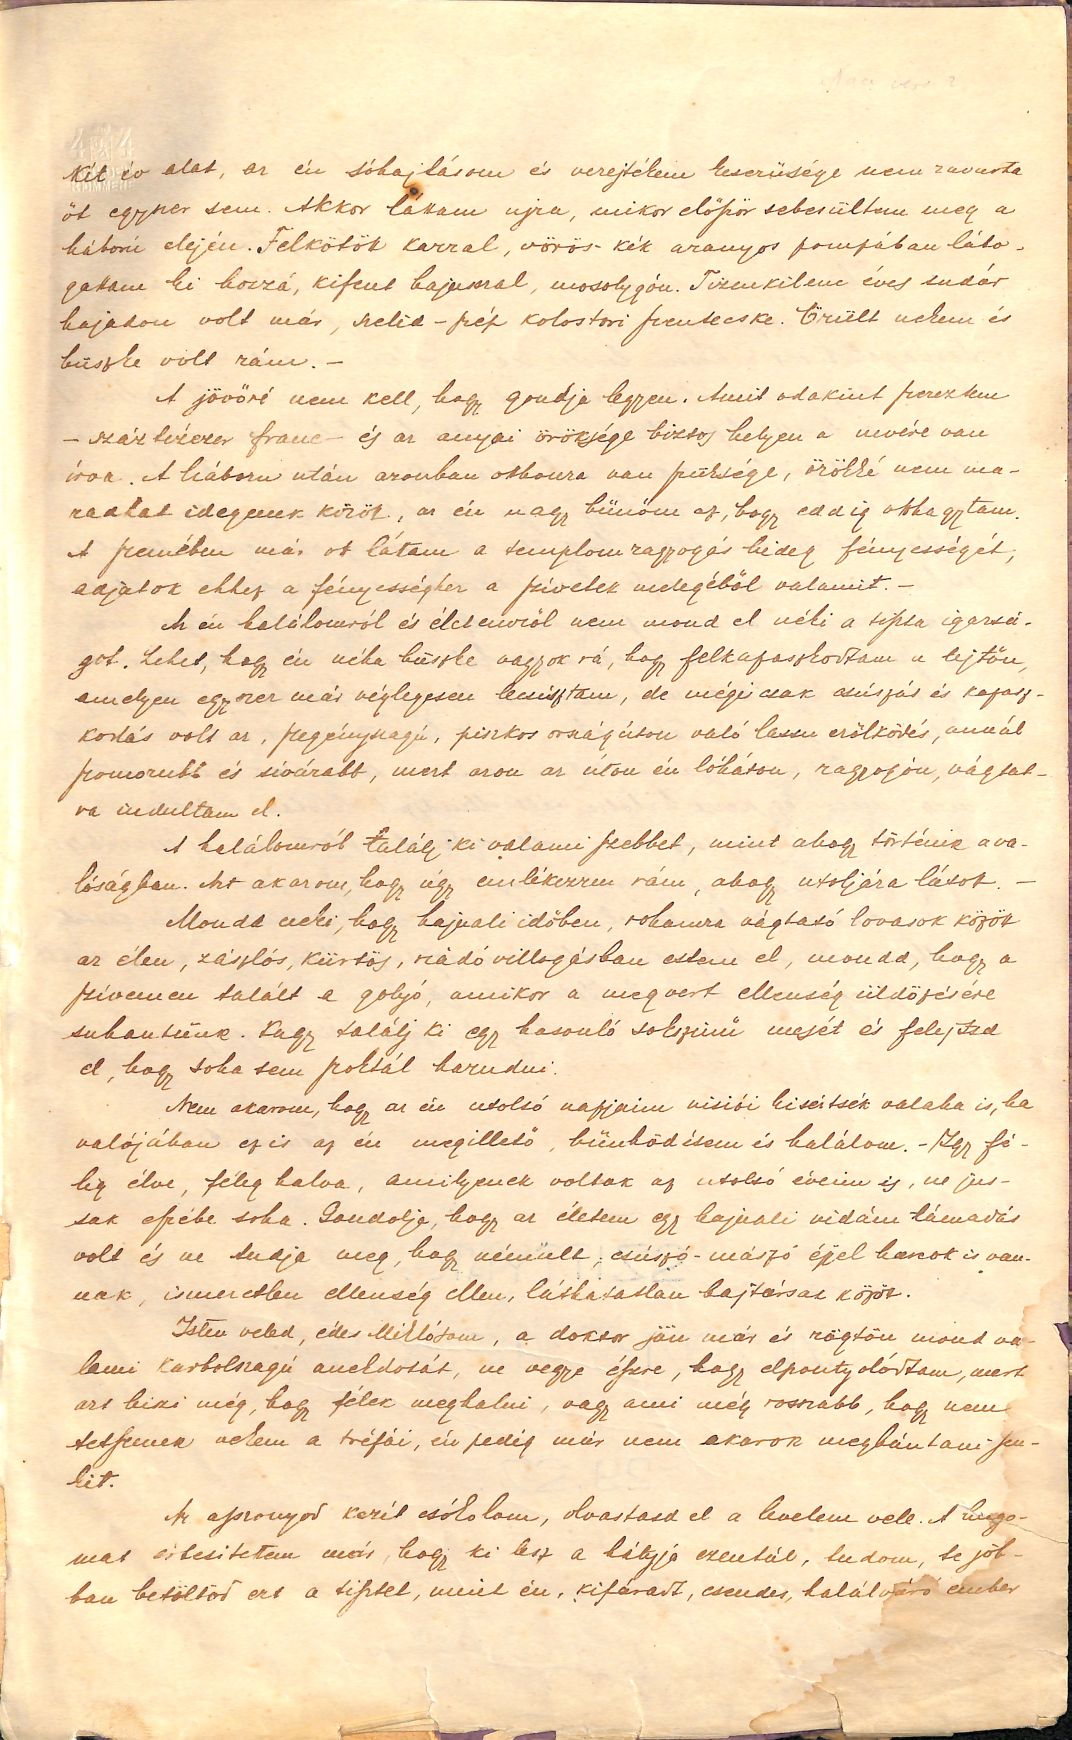 két év alat, az én sóhajtásom és verejtékem keserüsége nem zavarta
öt egyszer sem. Akkor látam ujra, mikor először sebesültem meg a
háború elején. Felkötök karral, vörös-kék aranyos pompában láto-
gatam ki hozzá, kifent bajusszal, mosolygón. Tizenkilenc éves sudár
hajadon volt már, szelid-szép kolostori szentecske. Örült nekem és
büszke volt rám. -
A jövöré nem kell, hogy gondja legyen. Amit odakint szereztem
- száztizezer franc - és az anyai öröksége biztos helyen a nevére van
irva. A háboru után azonban otthonra van szüksége, örökké nem ma-
radhat idegenek közöt, az én nagy bünöm az, hogy eddig otthagytam.
A szemében már ot látam a templomragyogás hideg fényességét,
adjatok ehhez a fényességhez a szivetek melegéböl valamit. -
Az én halálomról és életemröl nem mond el néki a tiszta igazsá-
got. Lehet, hogy én néha büszke vagyok rá, hogy felkapaszkodtam a lejtőn,
amelyen egyszer már véglegesen lecsúsztam, de mégis csak csúszás és kapasz-
kodás volt az, szegényszagú, piszkos országúton való lassu erölködés, annál
szomorubb és sivárabb, mert azon az úton én lóháton, ragyogón, vágtat-
va indultam el.
A halálomról találj ki valami szebbet, mint ahogy történik a va-
lóságban. Azt akarom, hogy úgy emlékezzen rám, ahogy utoljára látot. -
Mondd neki, hogy hajnali időben, rohamra vágtató lovasok közöt
az élen, zászlós, kürtös, riadó villogásban estem el, mondd, hogy a
szivemen talált a golyó, amikor a megvert ellenség üldözésére
suhantunk. Vagy találj ki egy hasonló sokszinű mesét és felejtsd
el, hogy soha sem szoktál hazudni.
Nem akarom, hogy az én utolsó napjaim visiói kisértsék valaha is, ha
valójában ez is az én megillető bünhödésem és halálom. - Igy fé-
lig élve, félig halva, amilyenek voltak az utolsó éveim is, ne jus-
sak eszébe soha. Gondolja, hogy az életem egy hajnali vidám támadás
volt és ne tudja meg, hogy rémült, csúszó-mászó éjjel harcok is van-
nak, ismeretlen ellenség ellen, láthatatlan bajtársak közöt.
Isten veled, édes Miklósom, a doktor jön már és rögtön mond va-
lami karbolszagú anekdotát, ne vegye észre, hogy elpontyolódtam, mert
azt hiszi még, hogy félek meghalni, vagy ami még rosszabb, hogy nem
tetszenek nekem a tréfái, én pedig már nem akarok megbántani sen-
kit.
Az asszonyod kezét csókolom, olvastasd el a levelem vele. A hugo-
mat értesitetem már, hogy ki lesz a bátyja ezentúl, tudom, te job-
ban betöltöd ezt a tisztet, mint én, kifáradt, csendes, halálváró ember